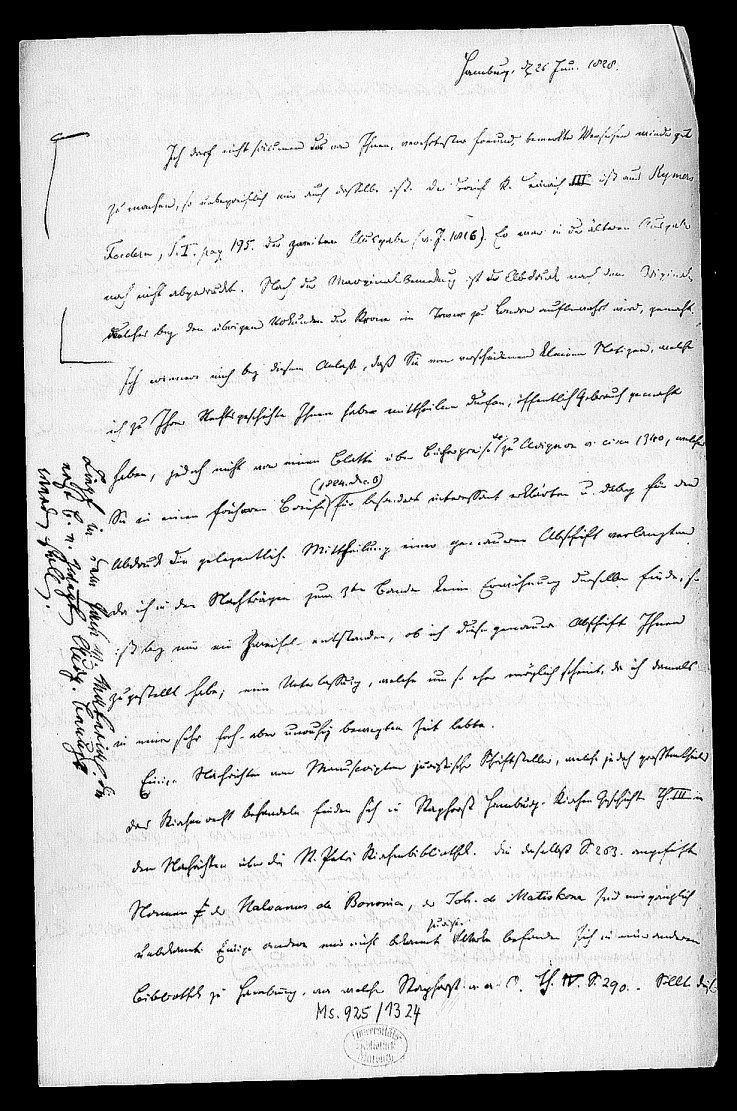 Hamburg, d 26 Jun. 1828.
Ich darf nicht säumen das von Ihnen, verehrtester Freund, bemerkte Versehen wieder gut
zu machen, so unbegreiflich mir auch dasselbe ist. Der Brief K. Heinrich III ist aus Rymers
Foedera, T. I. pag 195. der zweiten Ausgabe (v. J. 1816). Er war in der älteren Ausgabe
noch nicht abgedruckt. Nach der Marginalbemerkung ist der Abdruck nach dem Original,
welches bey den übrigen Urkunden der Krone im Tower zu London aufbewahrt wird, gemacht.
Ich erinnere mich bey diesem Anlaß, daß Sie von verschiedenen kleinen Notizen, welche
ich zu Ihrer Rechtsgeschichte Ihnen habe mittheilen dürfen, öffentlich Gebrauch gemacht
haben, jedoch nicht von einem Blatte über Bücherpreise zu Avignon v. circa 1340, welches
Sie in einem früheren Briefe (1824. Dec. 8) für besonders interessant erklärten u. dabey für den
Abdruck die gelegentliche Mittheilung einer genaueren Abschrift verlangten.
Da ich in den Nachträgen zum 3ten Bande keine Erwähnung derselben finde, so
ist bey mir ein Zweifel entstanden, ob ich diese genauere Abschrift Ihnen
zugestellt habe; eine Unterlassung, welche um so eher möglich scheint, da ich damals
in einer sehr froh- aber unruhig bewegten Zeit lebte.
Einige Nachrichten von Manuscripten juristischer Schriftsteller, welche jedoch größtentheils
das Kirchenrecht behandeln finden sich in Staphorst Hamburg. Kirchen Geschichte Th. III in
den Nachrichten über die St. Petri Kirchenbibliothek. Die daselbst S. 263. angeführten
Namen der Nalvanus de Bononia, der Joh. de Matiskone sind mir gänzlich
unbekannt. Einige andere mir nicht bekannte juristische Werke befinden sich in einer anderen
Bibliothek zu Hamburg, von welcher Staphorst a. a. O. Th. IV. S. 290. Sollte dies
Liegt in dem Fach
Ms. 925/1324
Universitäts
Bibliothek
Marburg